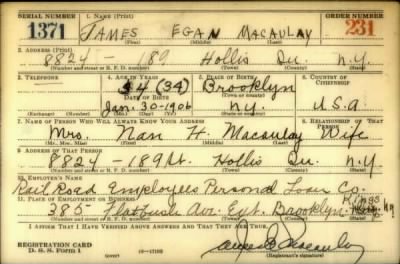 SERIAL NUMBER 1. NAME (Print) ORDER NUMBER
1371 JAMES EGAN MACAULAY 231
(First) (Middle) (Last)
2. ADDRESS (Print)
8824 - 189 Hollis Qu. N.Y.
(Number and street or R. F. D. number) (Town) (County) (State)
3. TELEPHONE 4. AGE IN YEARS 5. PLACE OF BIRTH 6. COUNTRY OF CITIZENSHIP
34 (34) Brooklyn
DATE OF BIRTH (Town or county)
Jan. 30-1906 N.Y. U.S.A
(Exchange) (Number) (Mo.) (Day) (Yr.) (State or country)
7. NAME OF PERSON WHO WILL ALWAYS KNOW YOUR ADDRESS 8. RELATIONSHIP OF THAT PERSON
Mrs. Nan H. Macaulay Wife
(Mr., Mrs., Miss) (First) (Middle) (Last)
9. ADDRESS OF THAT PERSON
8824 - 189 St. Hollis Qu. N.Y
(Number and street or R. F. D. number) (Town) (County) (State)
10. EMPLOYER'S NAME
Rail Road Employees Personal Loan Co.
11. PLACE OF EMPLOYMENT OR BUSINESS Kings
385 Flatbush Ave. Ext. Brooklyn N.Y
(Number and street or R. F. D. number) (Town) (County) (State)
I AFFIRM THAT I HAVE VERIFIED ABOVE ANSWERS AND THAT THEY ARE TRUE.
REGISTRATION CARD
D. S. S. Form 1 (over) James E Macaulay
(Registrant's signature)